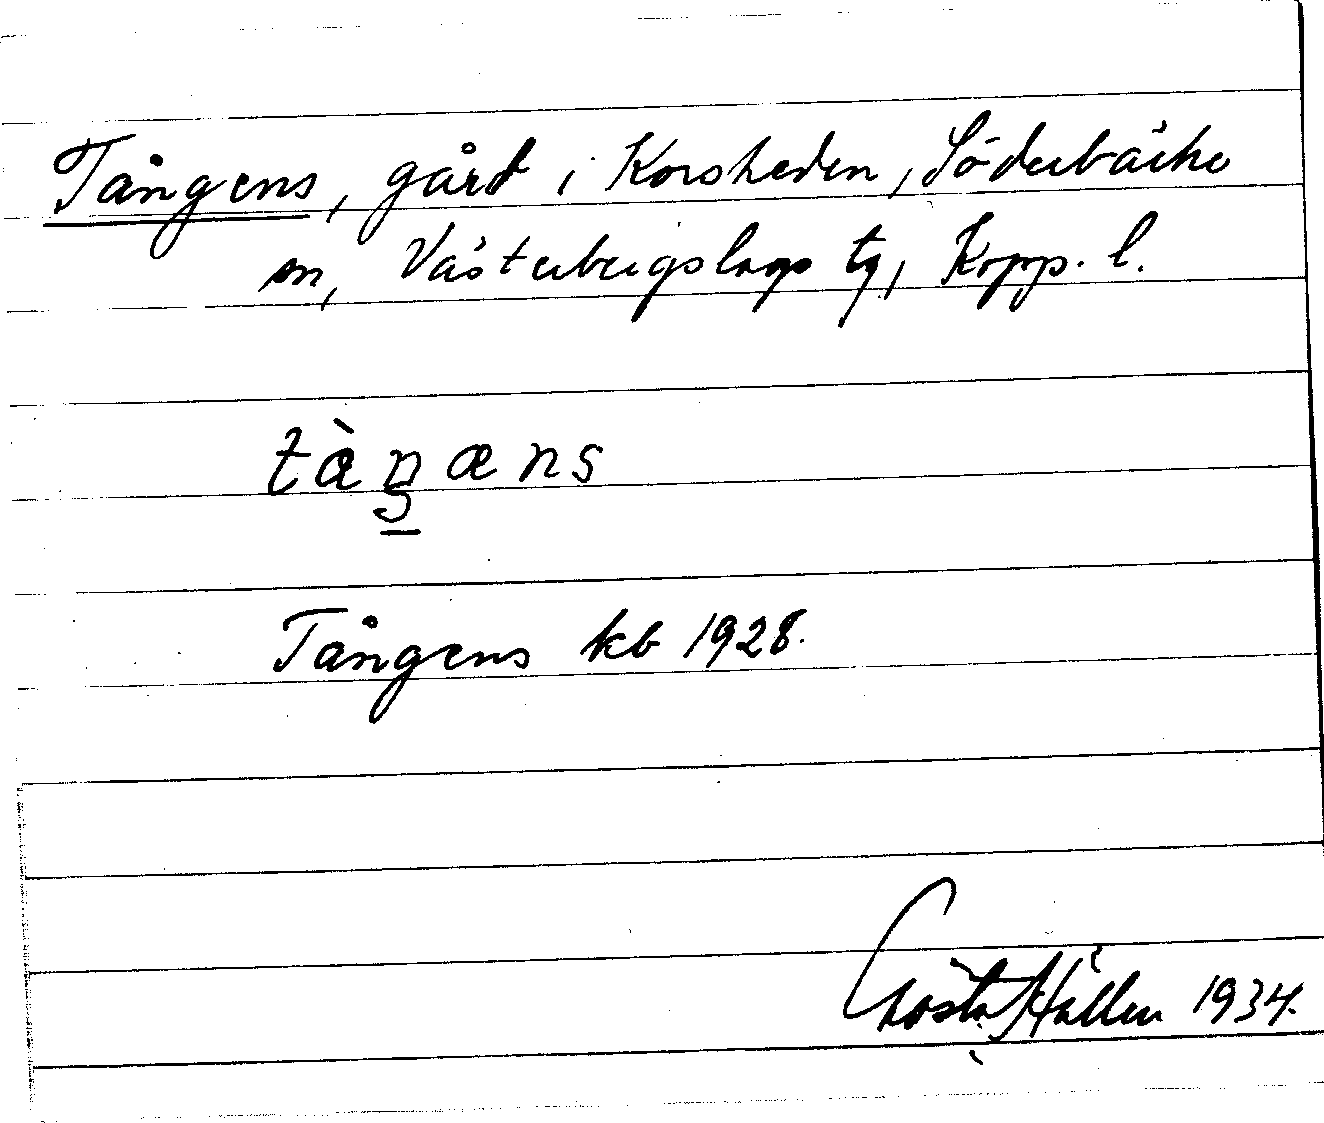 Tångens, gård i Korsheden, Söderbärke
sn, Västerbergslags tg, Kopp. l.
tàŋæns
Tångens kb 1928.
Gösta Hállen 1934.